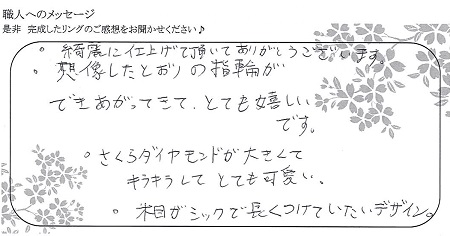 職人へのメッセージ
是非 完成したリングのご感想をお聞かせください♪
・綺麗に仕上げて頂いてありがとうございます。
・想像したとおりの指輪が
できあがってきて、とても嬉しい
です。
・さくらダイヤモンドが大きくて
キラキラしてとても可愛い。
・木目がシックで長くつけていたいデザイン。